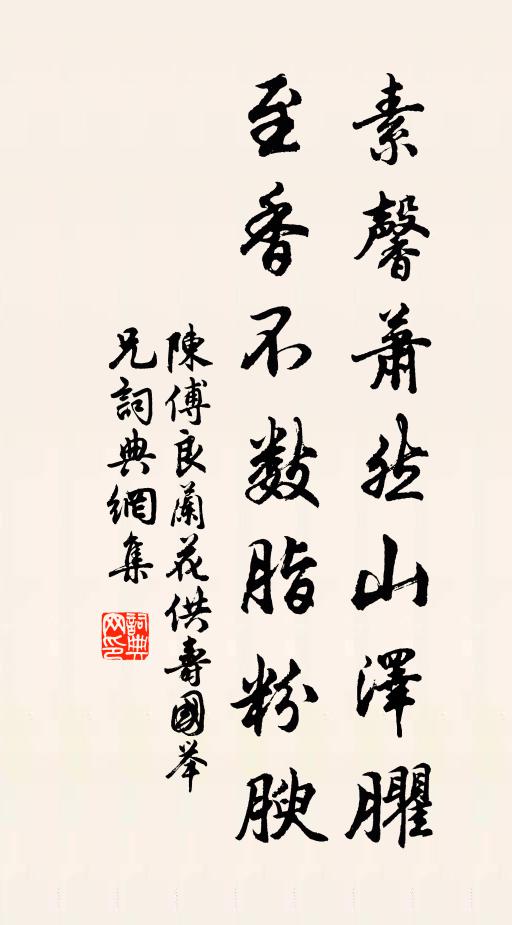 素馨蕭然山澤臞
至香不數脂粉腴
陳傅良蘭花供壽國举
兄詞典網集
詞典网印